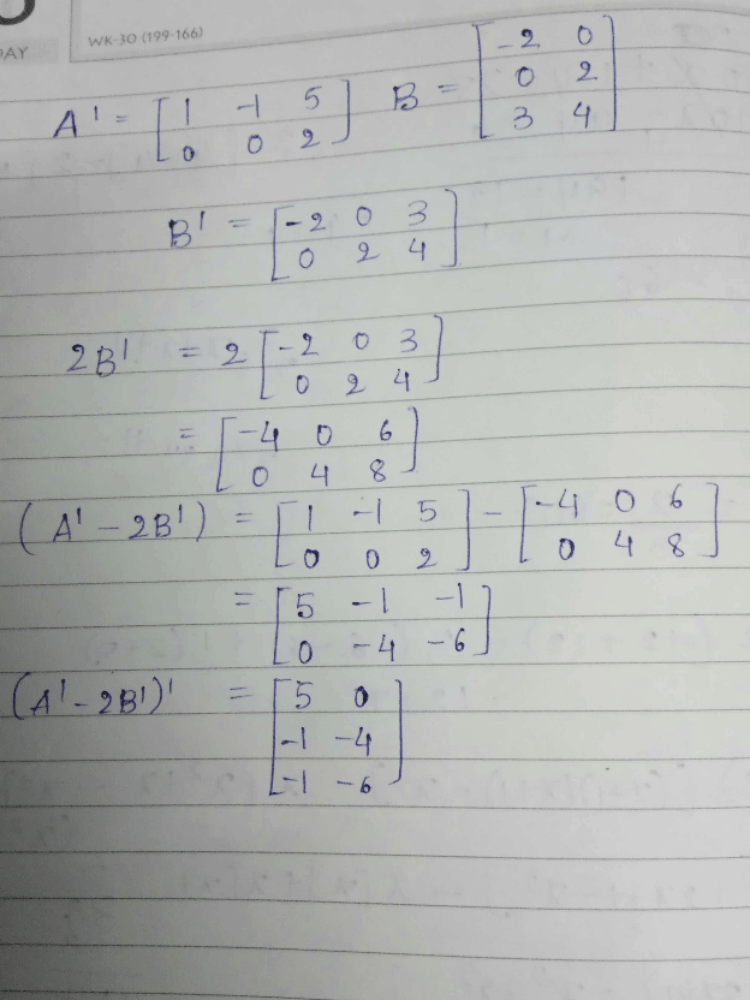 DAY
WK-30 (199-166)
A' = [1 -1 5
0 0 2] B = [-2 0
0 2
3 4]
B' = [-2 0 3
0 2 4]
2B' = 2 [-2 0 3
0 2 4]
= [-4 0 6
0 4 8]
(A' - 2B') = [1 -1 5
0 0 2] - [-4 0 6
0 4 8]
= [5 -1 -1
0 -4 -6]
(A' - 2B')' = [5 0
-1 -4
-1 -6]